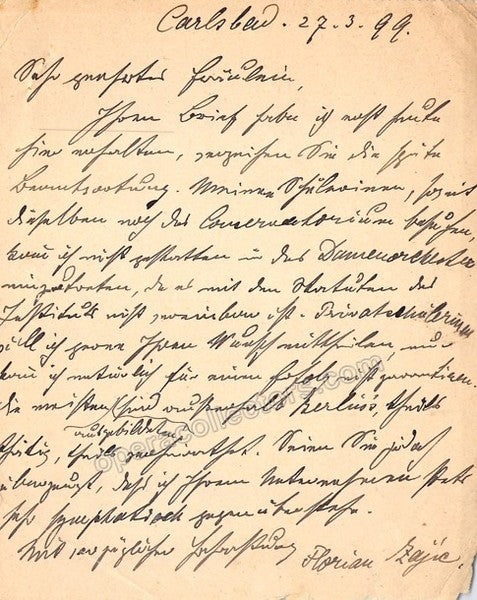 Carlsbad. 27.3.99.
Sehr geehrtes Fräulein,
Ihren Brief habe ich erst heute
hier erhalten, verzeihen Sie die späte
Beantwortung. Meinen Schülerinen, soweit
dieselben noch das Conservatorium besuchen,
kann ich nicht gestatten in das Damenorchester
einzutreten, da es mit den Statuten des
Instituts nicht vereinbar ist. Privatschülerinen
will ich gerne Ihren Wunsch mittheilen, nur
kann ich natürlich für einen Erfolg nicht garantieren.
die meisten sind ausserhalb Berlins, theils
ausgebildeten
thätig, theils verheirathet. Seien Sie jedoch
überzeugt, dass ich Ihrem Unternehmen stets
sehr symphatisch gegenüberstehe.
Mit vorzüglicher Hochachtung
Florian Zajic.
operacollectors.com